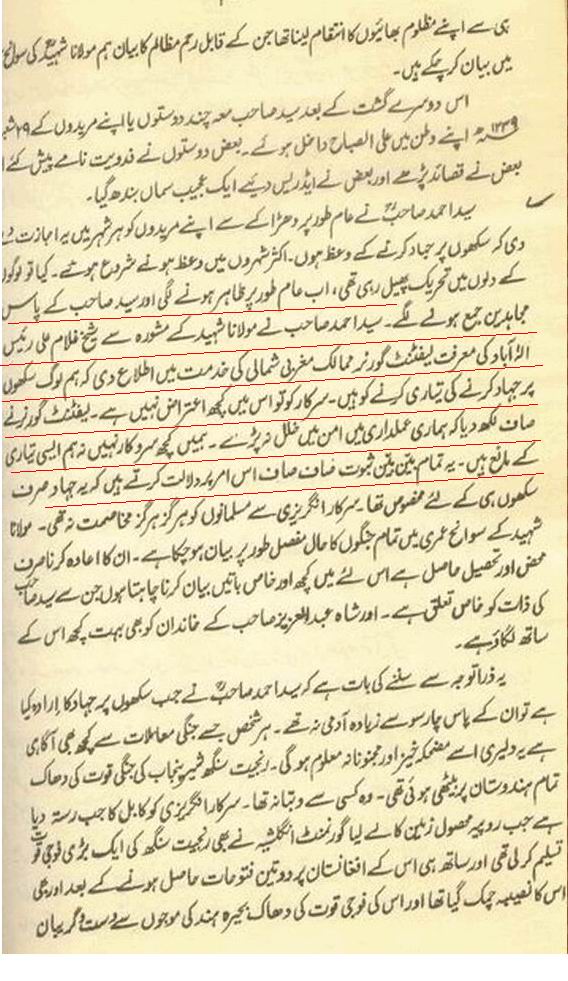 ہی سے اپنے مظلوم بھائیوں کا انتقام لینا تھا جن کے قابل رحم مظالم کا بیان ہم مولانا شہیدؒ کی سوانح
میں بیان کر چکے ہیں۔
اس دوسرے گشت کے بعد سید صاحب معہ چند دوستوں یا اپنے مریدوں کے ۲۹ شعبا
۱۲۳۹ھ اپنے وطن میں علی الصباح داخل ہوئے۔ بعض دوستوں نے فدویت نامے پیش کئے ا
بعض نے قصائد پڑھے اور بعض نے ایڈریس دیئے ایک عجیب سماں بندھ گیا۔
سید احمد صاحبؒ نے عام طور پر دھڑا کے سے اپنے مریدوں کو ہر شہر میں یہ اجازت دے
دی کہ سکھوں پر جہاد کرنے کے وعظ ہوں۔ اکثر شہروں میں وعظ ہونے شروع ہوئے۔ کیا تو لوگوں
کے دلوں میں تحریک پھیل رہی تھی، اب عام طور پر ظاہر ہونے لگی اور سید صاحب کے پاس
مجاہدین جمع ہونے لگے۔ سید احمد صاحب نے مولانا شہید کے مشورہ سے شیخ غلام علی رئیس
الہ آباد کی معرفت لیفٹننٹ گورنر ممالک مغربی شمالی کی خدمت میں اطلاع دی کہ ہم لوگ سکھوں
پر جہاد کرنے کی تیاری کرنے کو ہیں۔ سرکار کو تو اس میں کچھ اعتراض نہیں ہے۔ لیفٹننٹ گورنر نے
صاف لکھ دیا کہ ہماری عملداری میں امن میں خلل نہ پڑے۔ ہمیں کچھ سروکار نہیں نہ ہم ایسی تیاری
کے مانع ہیں۔ یہ تمام بین بین ثبوت صاف صاف اس امر پر دلالت کرتے ہیں کہ یہ جہاد صرف
سکھوں ہی کے لئے مخصوص تھا۔ سرکار انگریزی سے مسلمانوں کو ہرگز ہرگز مخاصمت نہ تھی۔ مولانا
شہید کے سوانح عمری میں تمام جنگوں کا حال مفصل طور پر بیان ہو چکا ہے۔ ان کا اعادہ کرنا صرف
محض اور تحصیل حاصل ہے اس لئے میں کچھ اور خاص باتیں بیان کرنا چاہتا ہوں جن سے سید صاحب
کی ذات کو خاص تعلق ہے۔ اور شاہ عبدالعزیز صاحب کے خاندان کو بھی بہت کچھ اس کے
ساتھ لگاؤ ہے۔
یہ ذرا توجہ سے سننے کی بات ہے کہ سید احمد صاحبؒ نے جب سکھوں پر جہاد کا ارادہ کیا
ہے تو ان کے پاس چار سو سے زیادہ آدمی نہ تھے۔ ہر شخص جسے جنگی معاملات سے کچھ بھی آگاہی
ہے یہ دلیری اسے مضحکہ خیز اور مجنونانہ معلوم ہو گی۔ رنجیت سنگھ شیر پنجاب کی جنگی قوت کی دھاک
تمام ہندوستان پر بیٹھی ہوئی تھی۔ وہ کسی سے دبتا نہ تھا۔ سرکار انگریزی کو کابل کا جب رستہ دیا
ہے جب روپیہ محصول زمین کا لے لیا گورنمنٹ انگلشیہ نے بھی رنجیت سنگھ کی ایک بڑی فوجی قوت
تسلیم کر لی تھی اور ساتھ ہی اس کے افغانستان پر دو تین فتوحات حاصل ہونے کے بعد اور بھی
اس کا نصیبہ چمک گیا تھا اور اس کی فوجی قوت کی دھاک بحیرہ ہند کی موجوں سے دست و گریبان